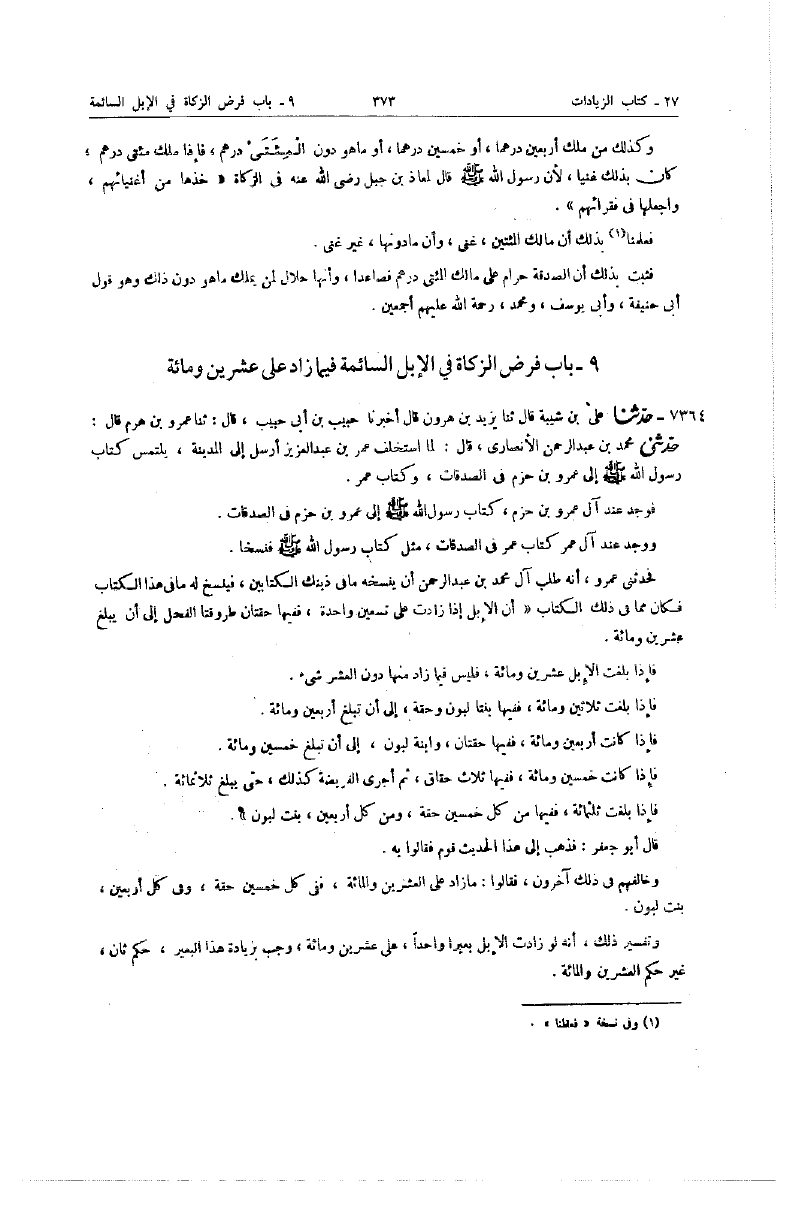 ٢٧ - كتاب الزيادات ٣٧٣ ٩ - باب فرض الزكاة في الإبل السائمة
وكذلك من ملك أربعين درهما ، أو خمسين درهما، أو ماهو دون المِئَتَى درهم ، فإذا ملك مئتى درهم ،
كان بذلك غنيا ، لأن رسول الله ﷺ قال لمعاذ بن جبل رضى الله عنه فى الزكاة « خذها من أغنيائهم ،
واجعلها فى فقرائهم » .
فعلمنا(١) بذلك أن مالك المئتين ، غنى ، وأن مادونها ، غير غنى .
فثبت بذلك أن الصدقة حرام على مالك المئتى درهم فصاعدا ، وأنها حلال لمن يملك ماهو دون ذلك وهو قول
أبى حنيفة ، وأبى يوسف ، ومحمد ، رحمة الله عليهم أجمعين .
٩ - باب فرض الزكاة في الإبل السائمة فيما زاد على عشرين ومائة
٧٣٦٤ - حدثنا علىّ بن شيبة قال ثنا يزيد بن هرون قال أخبرنا حبيب بن أبى حبيب ، قال : ثنا عمرو بن هرم قال :
حدثنى محمد بن عبدالرحمن الأنصارى ، قال : لما استخلف عمر بن عبدالعزيز أرسل إلى المدينة ، يلتمس كتاب
رسول الله ﷺ إلى عمرو بن حزم فى الصدقات ، وكتاب عمر .
فوجد عند آل عمرو بن حزم ، كتاب رسول الله ﷺ إلى عمرو بن حزم فى الصدقات .
ووجد عند آل عمر كتاب عمر فى الصدقات ، مثل كتاب رسول الله ﷺ فنسخا .
فحدثنى عمرو ، أنه طلب آل محمد بن عبدالرحمن أن ينسخه مافى ذينك الكتابين ، فينسخ له مافى هذا الكتاب
فكان مما فى ذلك الكتاب « أن الإبل إذا زادت على تسعين واحدة ، ففيها حقتان طروقتا الفحل إلى أن يبلغ
عشرين ومائة .
فإذا بلغت الإبل عشرين ومائة ، فليس فيما زاد منها دون العشر شىء .
فإذا بلغت ثلاثين ومائة ، ففيها بنتا لبون وحقة ، إلى أن تبلغ أربعين ومائة .
فإذا كانت أربعين ومائة ، ففيها حقتان ، وابنة لبون ، إلى أن تبلغ خمسين ومائة .
فإذا كانت خمسين ومائة ، ففيها ثلاث حقاق ، ثم أجرى الفريضة كذلك ، حتى يبلغ ثلاثمائة .
فإذا بلغت ثلثمائة ، ففيها من كل خمسين حقة ، ومن كل أربعين ، بنت لبون » .
قال أبو جعفر : فذهب إلى هذا الحديث قوم فقالوا به .
وخالفهم فى ذلك آخرون ، فقالوا : مازاد على العشرين والمائة ، ففى كل خمسين حقة ، وفى كل أربعين ،
بنت لبون .
وتفسير ذلك ، أنه لو زادت الإبل بعيرا واحداً ، على عشرين ومائة ، وجب بزيادة هذا البعير ، حكم ثان ،
غير حكم العشرين والمائة .
(١) وفى نسخة « فعلمنا » .